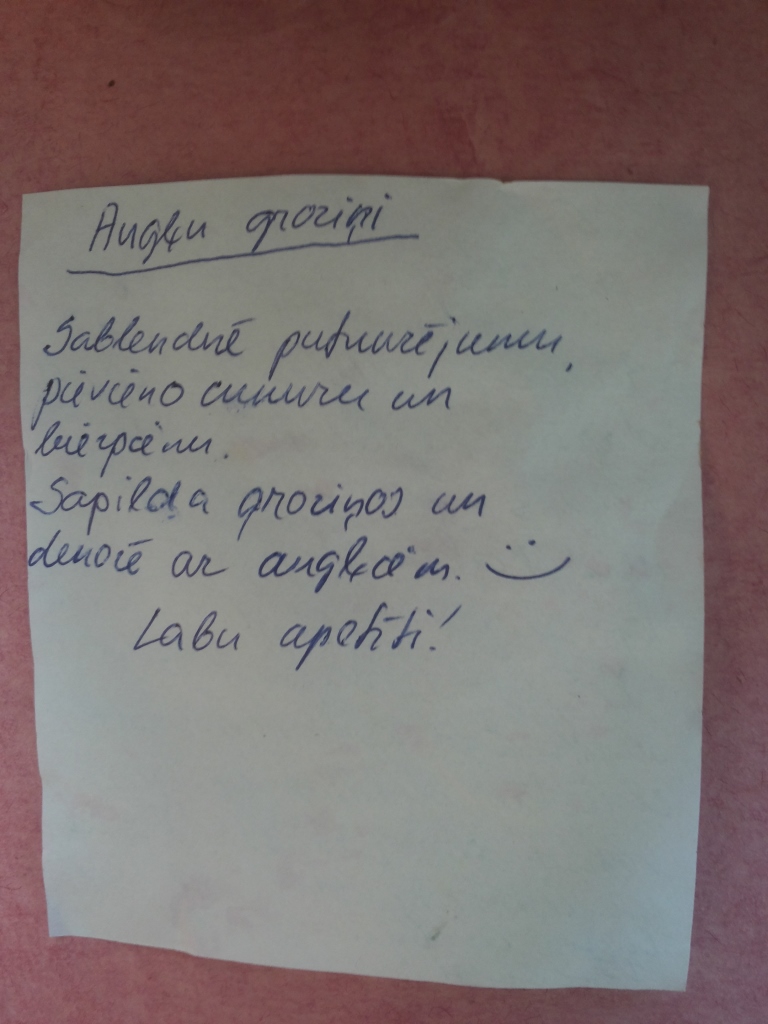 Augļu groziņi
Sablendrē putukrējumu,
pievieno cukuru un
biezpienu.
Sapilda groziņos un
dekorē ar augļiem.
Labu apetīti!